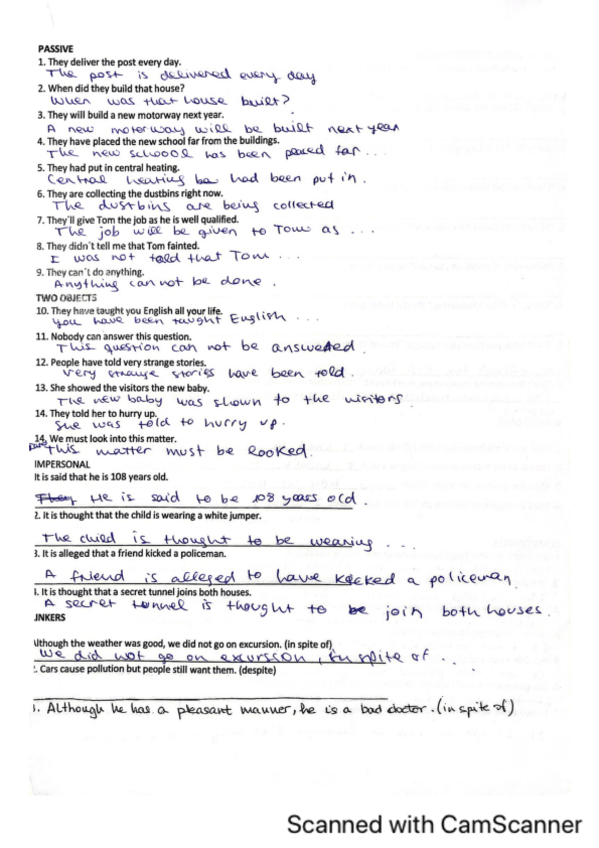 PASSIVE
1. They deliver the post every day.
The post is delivered every day
2. When did they build that house?
When was that house built?
3. They will build a new motorway next year.
A new motorway will be built next year
4. They have placed the new school far from the buildings.
The new schoool has been placed far ...
5. They had put in central heating.
Central heating had been put in.
6. They are collecting the dustbins right now.
The dustbins are being collected
7. They'll give Tom the job as he is well qualified.
The job will be given to Tom as ...
8. They didn't tell me that Tom fainted.
I was not told that Tom ...
9. They can't do anything.
Anything can not be done.
TWO OBJECTS
10. They have taught you English all your life.
You have been taught English ...
11. Nobody can answer this question.
This question can not be answered.
12. People have told very strange stories.
Very strange stories have been told.
13. She showed the visitors the new baby.
The new baby was shown to the visitors.
14. They told her to hurry up.
She was told to hurry up.
14. We must look into this matter.
This matter must be looked.
IMPERSONAL
It is said that he is 108 years old.
They He is said to be 108 years old.
2. It is thought that the child is wearing a white jumper.
The child is thought to be wearing ...
3. It is alleged that a friend kicked a policeman.
A friend is alleged to have kicked a policeman.
I. It is thought that a secret tunnel joins both houses.
A secret tunnel is thought to be join both houses.
INKERS
Although the weather was good, we did not go on excursion. (in spite of)
We did not go on excursion, in spite of ...
2. Cars cause pollution but people still want them. (despite)
3. Although he has a pleasant manner, he is a bad doctor. (in spite of)
Scanned with CamScanner